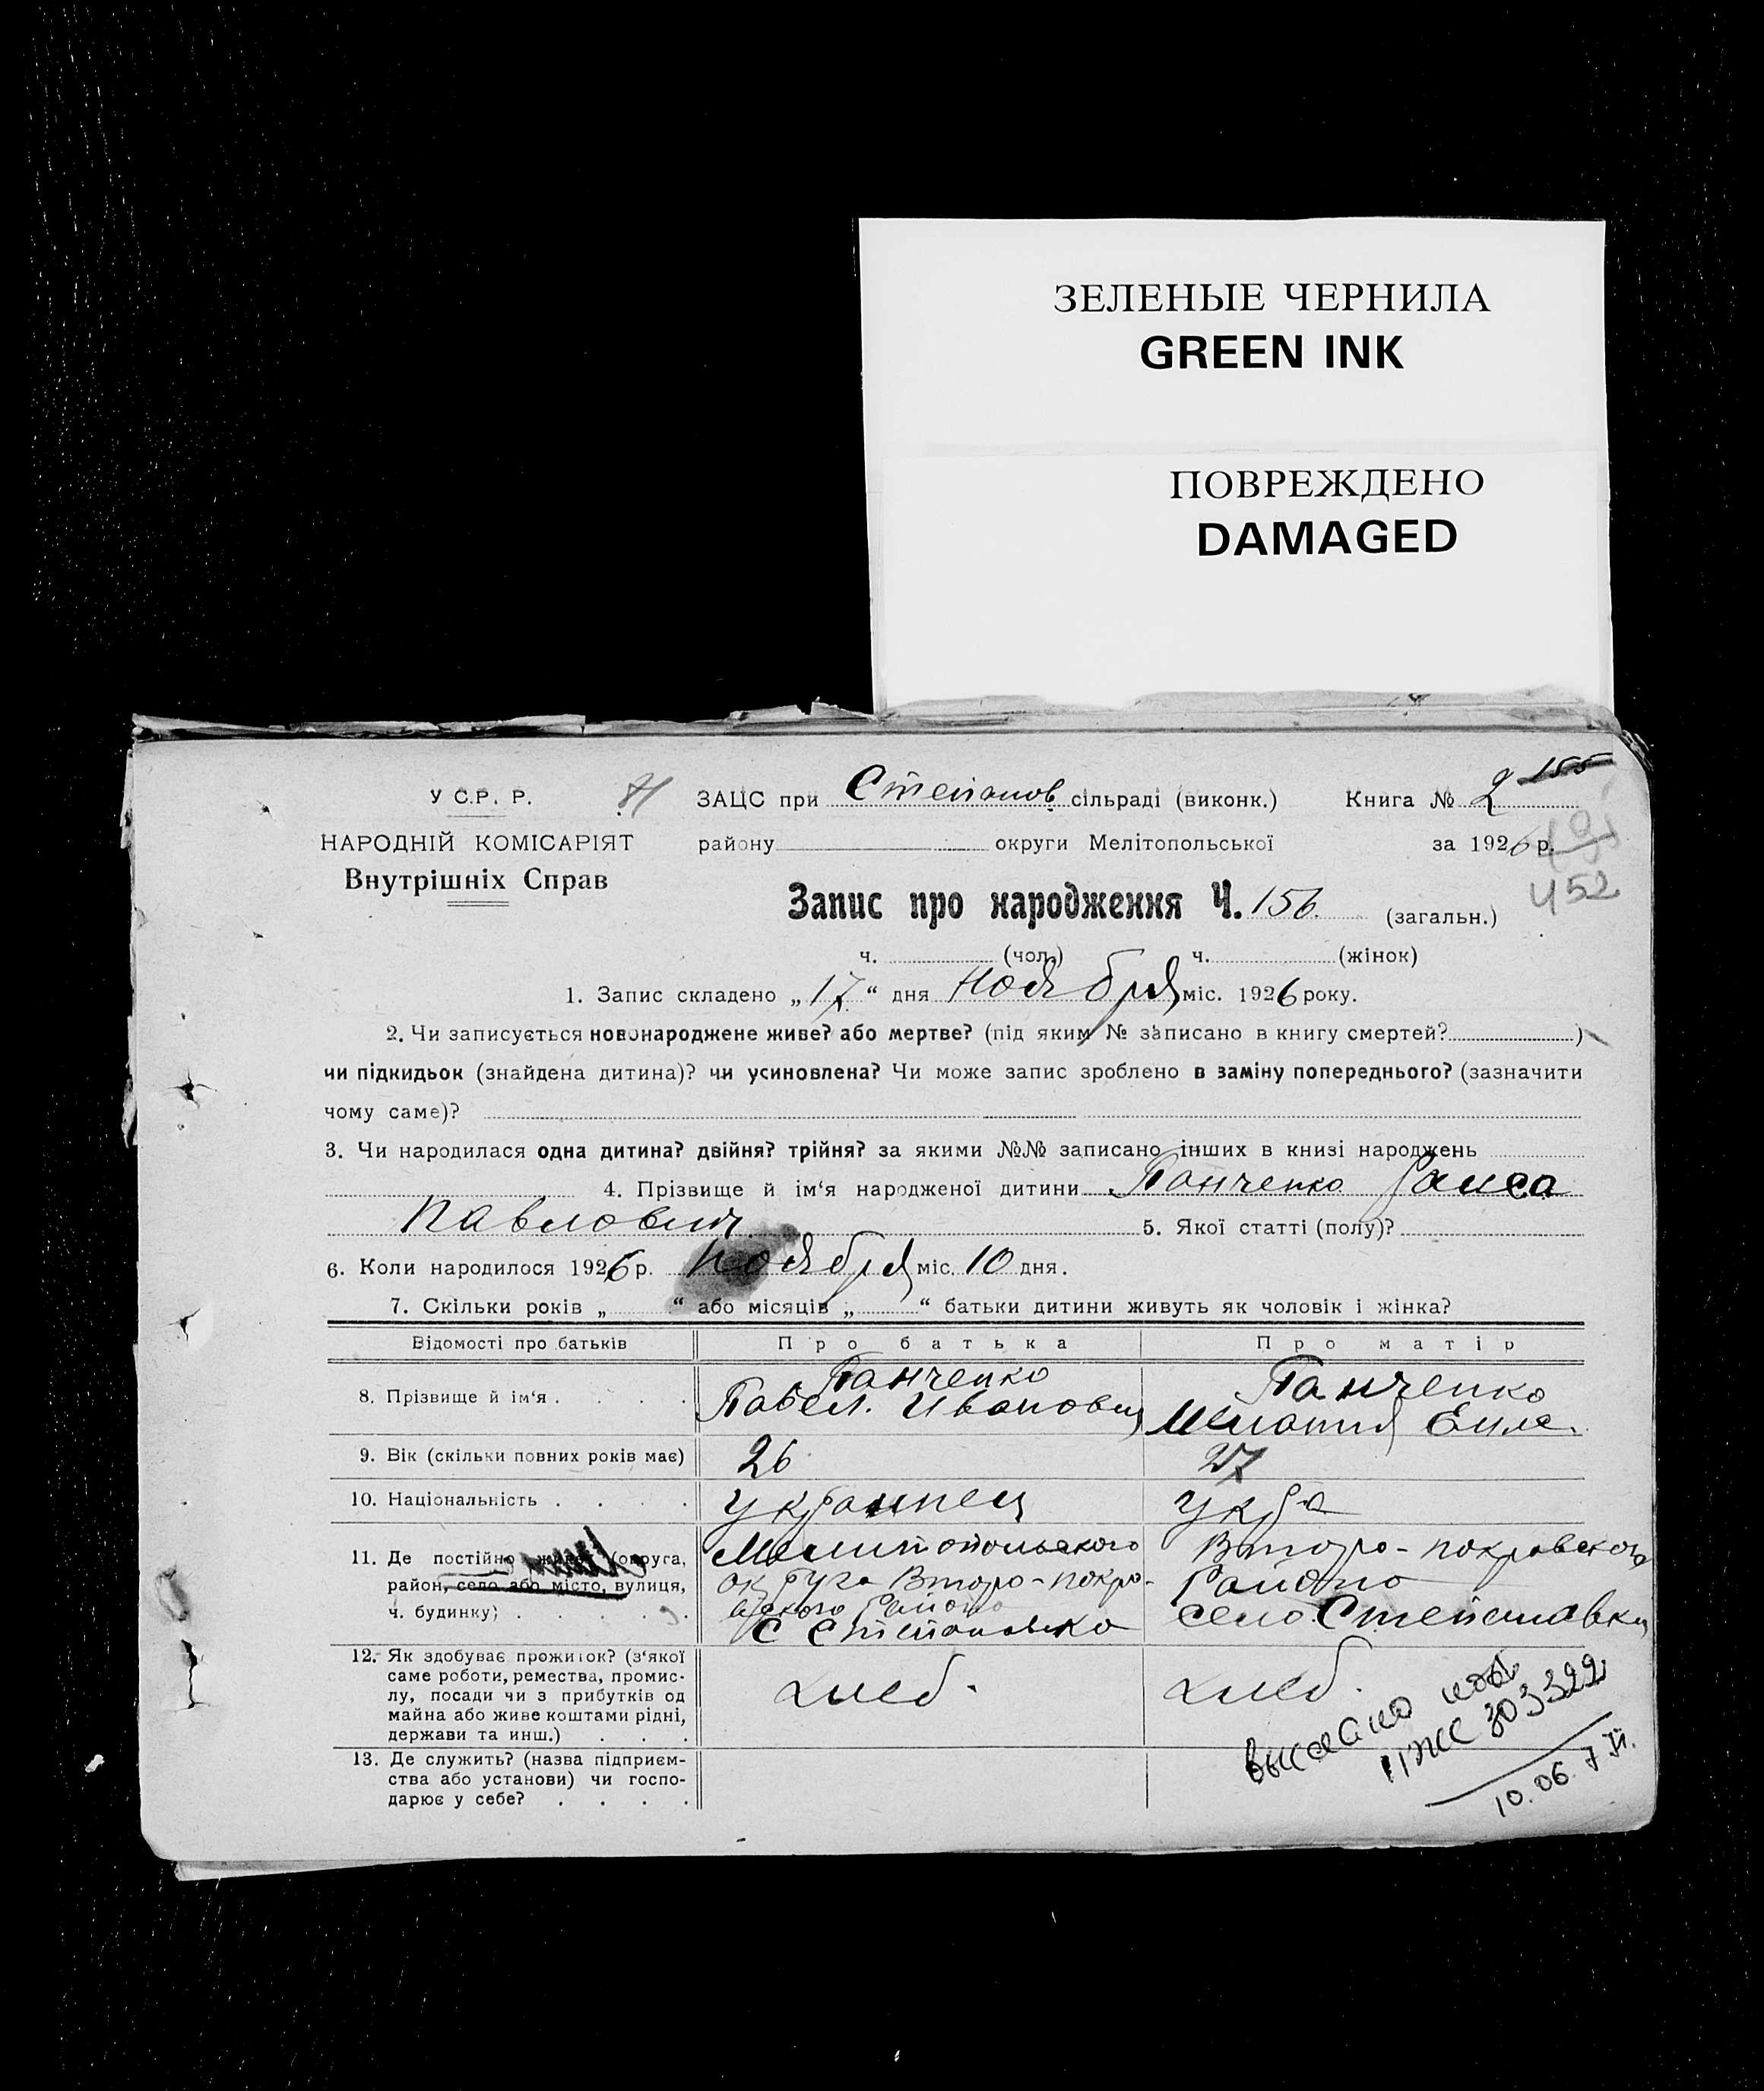 ЗЕЛЕНЫЕ ЧЕРНИЛА
GREEN INK
ПОВРЕЖДЕНО
DAMAGED
У С.Р. Р.
ЗАЦС при Степанов. сільраді (виконк.) Книга № 2 155
НАРОДНІЙ КОМІСАРІЯТ
району округи Мелітопольської за 1926 р.
Внутрішніх Справ
452
Запис про народження Ч. 156. (загальн.)
ч. (чол.) ч. (жінок)
1. Запис складено „17“ дня Ноября міс. 1926 року.
2. Чи записується новонароджене живе? або мертве? (під яким № записано в книгу смертей? )
чи підкидьок (знайдена дитина)? чи усиновлена? Чи може запис зроблено в заміну попереднього? (зазначити
чому саме)?
3. Чи народилася одна дитина? двійня? трійня? за якими №№ записано інших в книзі народжень
4. Прізвище й ім‘я народженої дитини Панченко Раиса
Павлович 5. Якої статті (полу)?
6. Коли народилося 1926 р. Ноября міс. 10 дня.
7. Скільки років „ “ або місяців „ “ батьки дитини живуть як чоловік і жінка?
Відомості про батьків Про батька Про матір
8. Прізвище й ім‘я . . . . Панченко Павел. Иванович Панченко
9. Вік (скільки повних років має) 26 27
10. Національність . . . . Украинец Укр-а
11. Де постійно живе? (округа, Мелитопольского Второ-покровского
район, село або місто, вулиця, округа Второ-покро- Района
ч. будинку) . . . . . вского Района село Степановки
С Степановка
12. Як здобуває прожиток? (з‘якої
саме роботи, ремества, промис-
лу, посади чи з прибутків од хлеб. хлеб.
майна або живе коштами рідні,
держави та инш.) . . .
13. Де служить? (назва підприєм-
ства або установи) чи госпо-
дарює у себе? . . . .
выслано
303322
10.06.7